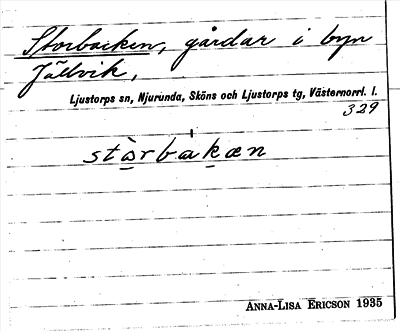 Storbacken, gårdar i byn
Jällvik,
Ljustorps sn, Njurunda, Sköns och Ljustorps tg, Västernorrl. l.
329
stò̲rbak̲æn
ANNA-LISA ERICSON 1935